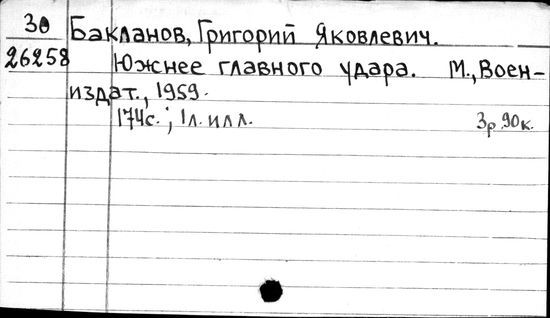 30 Бакланов, Григорий Яковлевич.
26258 Южнее главного удара. М., Воен-
издат., 1959.
174с.; 1л. илл. 3р.90к.